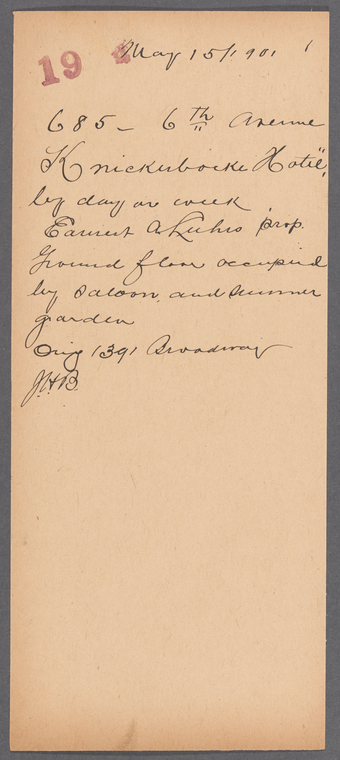 19
May 15/1901
685 - 6th Avenue
Knickerbocke Hotel,
by day or week
Earnest A. Luhrs prop.
Ground floor occupied
by saloon, and summer
garden
Orig 1391 Broadway
J.H.B.